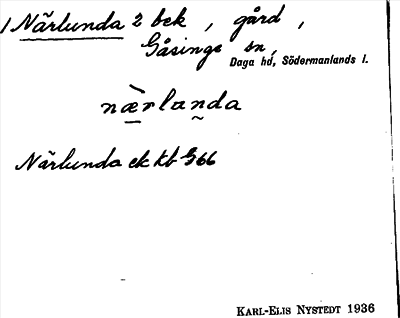 1 Närlunda 2 bek, gård,
Gåsinge sn,
Daga hd, Södermanlands l.
næ̀rlanda
Närlunda ek kb 566
KARL-ELIS NYSTEDT 1936